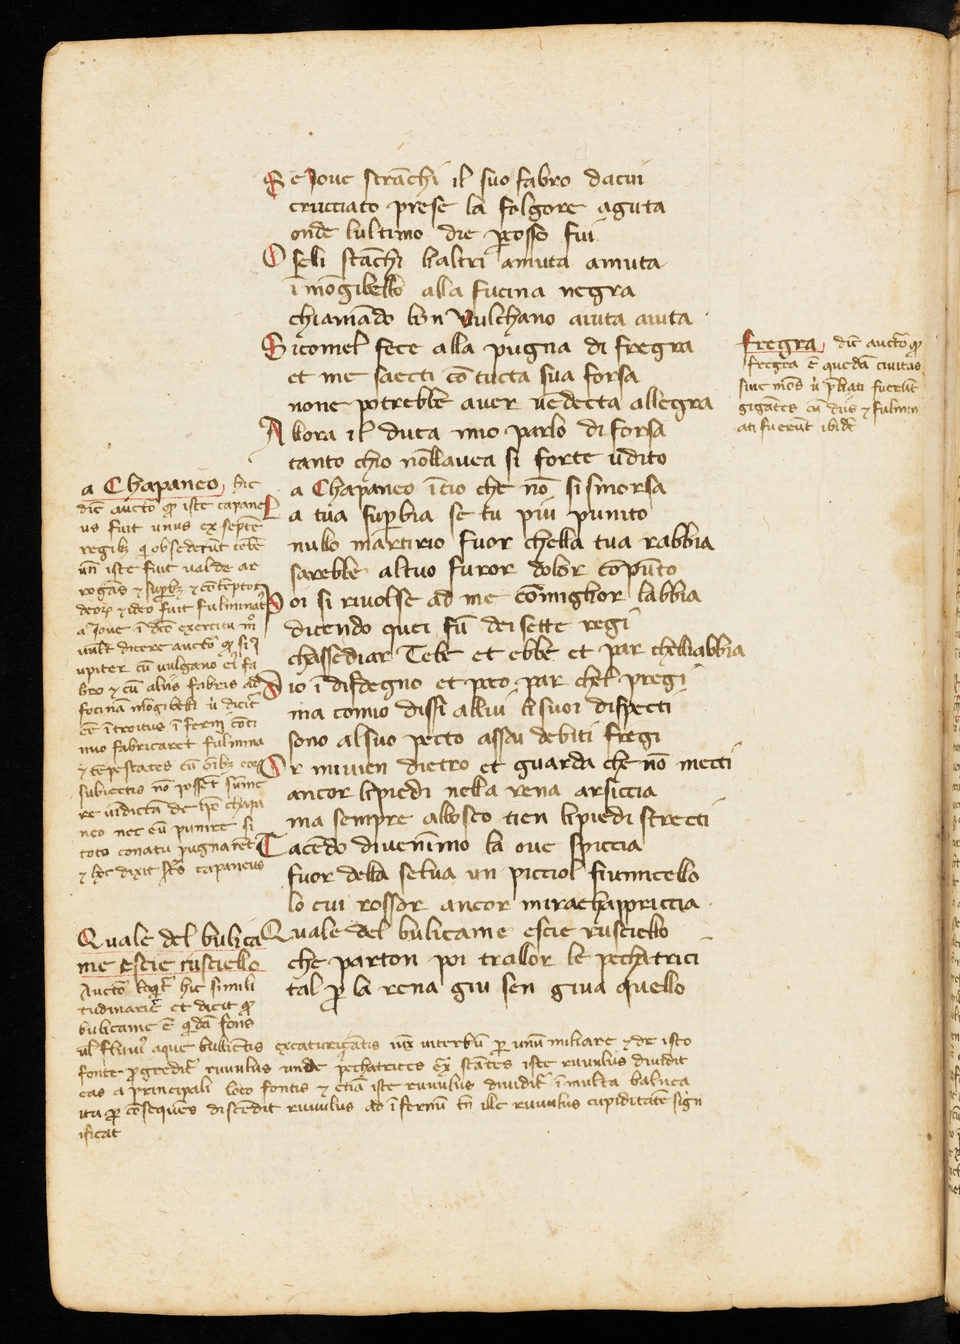 Se Joue strāchi il suo fabro dacui
crucciato prese la folgore aguta
onde lultimo die ꝑcosso fui
O selli stāchi laltri amuta amuta
ī mōgibello alla fucina negra
chiamādo bon Vulchano aiuta aiuta
Sicomel fece alla pugna di fregra
et me saecti cō tucta sua forsa
none potrebbe auer uēdecta allegra
Allora il duca mio parlo di forsa
tanto chio nōllauea si forte udito
a Chapaneo īcio che nō si smorsa
La tua supbia se tu piu punito
nullo martirio fuor chella tua rabbia
sarebbe altuo furor dolor cōpiuto
Poi si riuolse ad me cōmiglior labbia
dicendo quei fū dei sette regi
chassediar Tebe et ebbe et par chelliabbia
Dio ī disdegno et poco par chel pregi
ma comio dissi allui li suoi dispecti
sono alsuo pecto assai debiti fregi
Or miuien dietro et guarda che nō mecti
ancor lipiedi nella rena arsiccia
ma sempre albosco tien lipiedi strecti
Tacēdo diuenīmo la oue spiccia
fuor della selua un picciol fiumicello
lo cui rossor ancor mirachappriccia
Quale del bulicame escie rusciello
che parton poi trallor le pechatrici
tal ꝑ la rena giu sen giua quello
fregra dic̄ auctō ꝙ
fregra ē quedā ciuitas
siue mōs ꝟ ꝓliati fuerūt
gigātes cū diis ⁊ fulmin
ati fuerūt ibidē
a Chapaneo hic
dic̄ auctō ꝙ iste capane
us fuit unus ex septē
regibꝫ q̄ obsederūt tebē
un̄ iste fuit ualde ar
rogās ⁊ supbꝫ ⁊ cōtēptor
deoꝝ ⁊ ideo fuit fulminat
a Joue ī dc̄o exercitu
uult dicere auctō ꝙ si J
upiter cū uulgano ei fa
bro ⁊ cū aliis fabris ad
focinā mōgibelli ꝟ dicit̄
eē ītroitus īferni cōti
nuo fabricaret fulmina
⁊ tēpestates cū oībꝫ
subiectio nō posset sūme
re uīdictā de chapa
neo nec eū punire si
toto conatu pugnaret
⁊ hec dixit capaneus
Quale del bulica
me escie rusciello
Auctō hic simili
tudinarie et dicit ꝙ
bulicame ē q̄dā fons
uł fluuiꝰ aque bulliētis excaturiçātis ꝑ unū miliare ⁊ de isto
fonte ꝓgredit̄ riuulus unde pechatrices stātes iste riuulus diuidit
eas a principali loco fontis ⁊ etiā iste riuulus diuidit̄ ī multa balnea
ita ꝙ cōsequēs discēdit riuulus ad īfernū ille riuulus cupiditatē sign
ificat